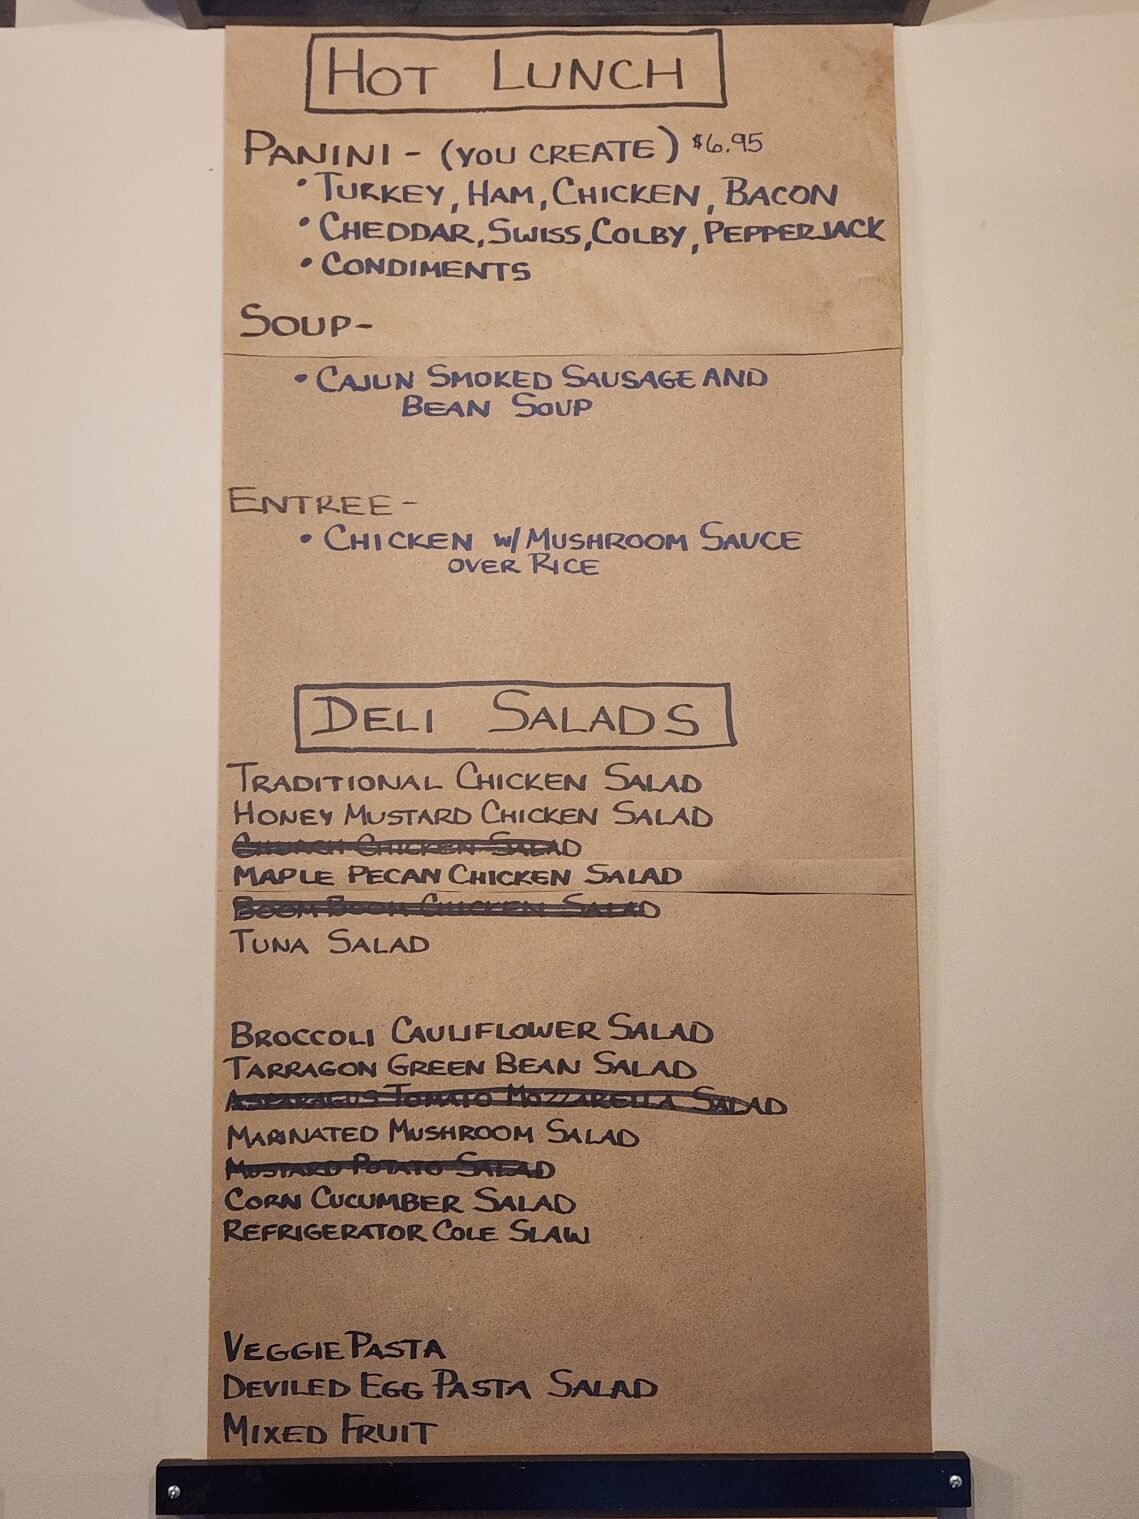 HOT LUNCH
PANINI - (YOU CREATE) $6.95
• TURKEY, HAM, CHICKEN, BACON
• CHEDDAR, SWISS, COLBY, PEPPERJACK
• CONDIMENTS
SOUP-
• CAJUN SMOKED SAUSAGE AND
BEAN SOUP
ENTREE-
• CHICKEN W/ MUSHROOM SAUCE
OVER RICE
DELI SALADS
TRADITIONAL CHICKEN SALAD
HONEY MUSTARD CHICKEN SALAD
CHICKEN SALAD
MAPLE PECAN CHICKEN SALAD
BOOM BOOM CHICKEN SALAD
TUNA SALAD
BROCCOLI CAULIFLOWER SALAD
TARRAGON GREEN BEAN SALAD
ASPARAGUS TOMATO MOZZARELLA SALAD
MARINATED MUSHROOM SALAD
MUSTARD POTATO SALAD
CORN CUCUMBER SALAD
REFRIGERATOR COLE SLAW
VEGGIE PASTA
DEVILED EGG PASTA SALAD
MIXED FRUIT